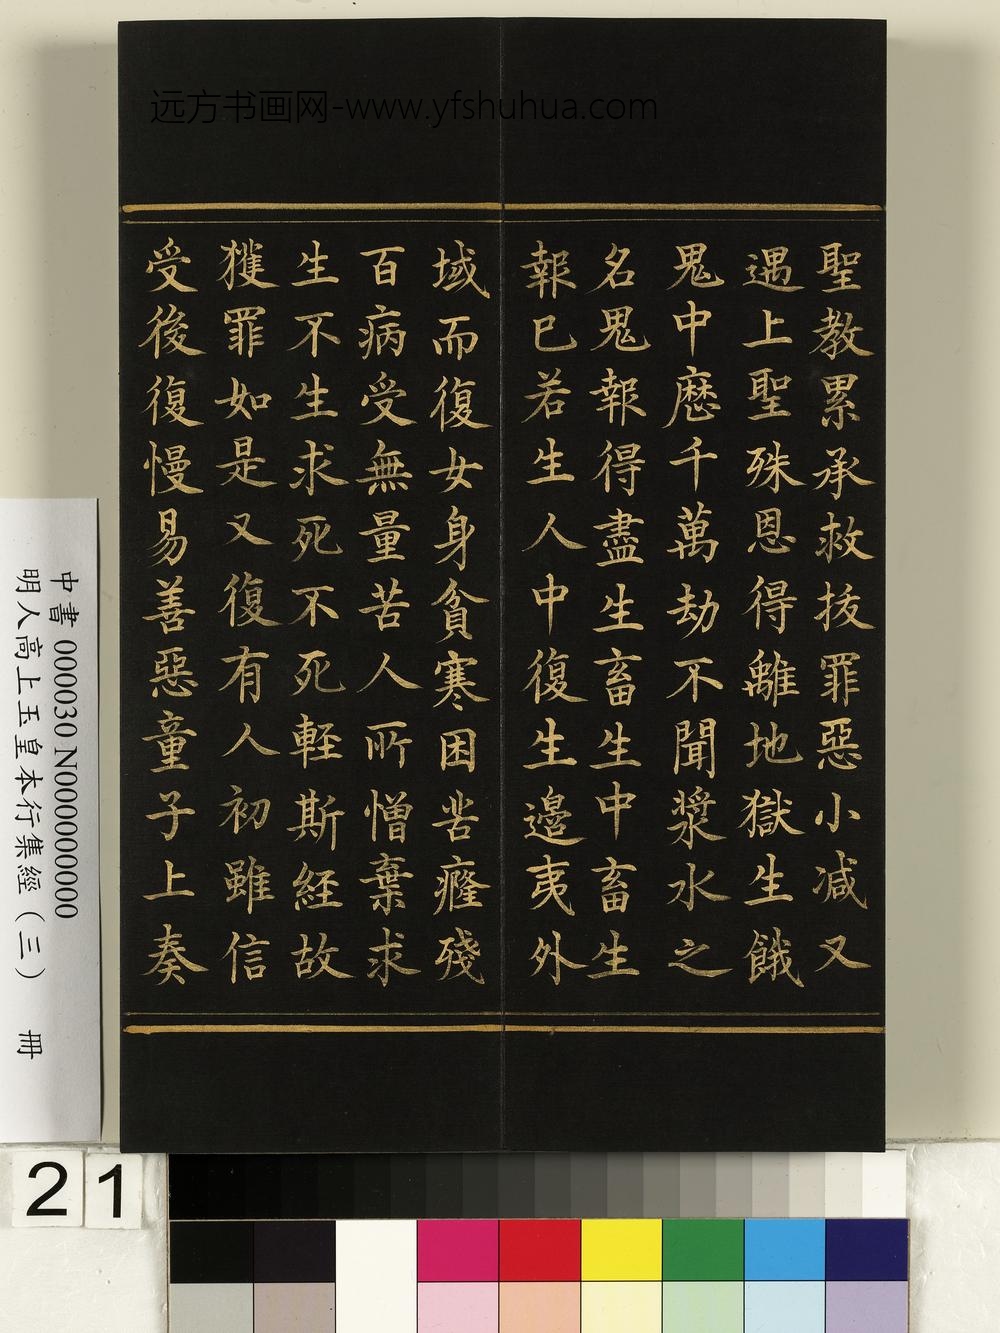 远方书画网-www.yfshuhua.com
聖教累承救拔罪惡小减又
遇上聖殊恩得離地獄生餓
鬼中歷千萬劫不聞漿水之
名鬼報得盡生畜生中畜生
報已若生人中復生邊夷外
域而復女身貧寒困苦癃殘
百病受無量苦人所憎棄求
生不生求死不死輕斯經故
獲罪如是又復有人初雖信
受後復慢易善惡童子上奏
中書 000030 N000000000
明人高上玉皇本行集經(三) 冊
21